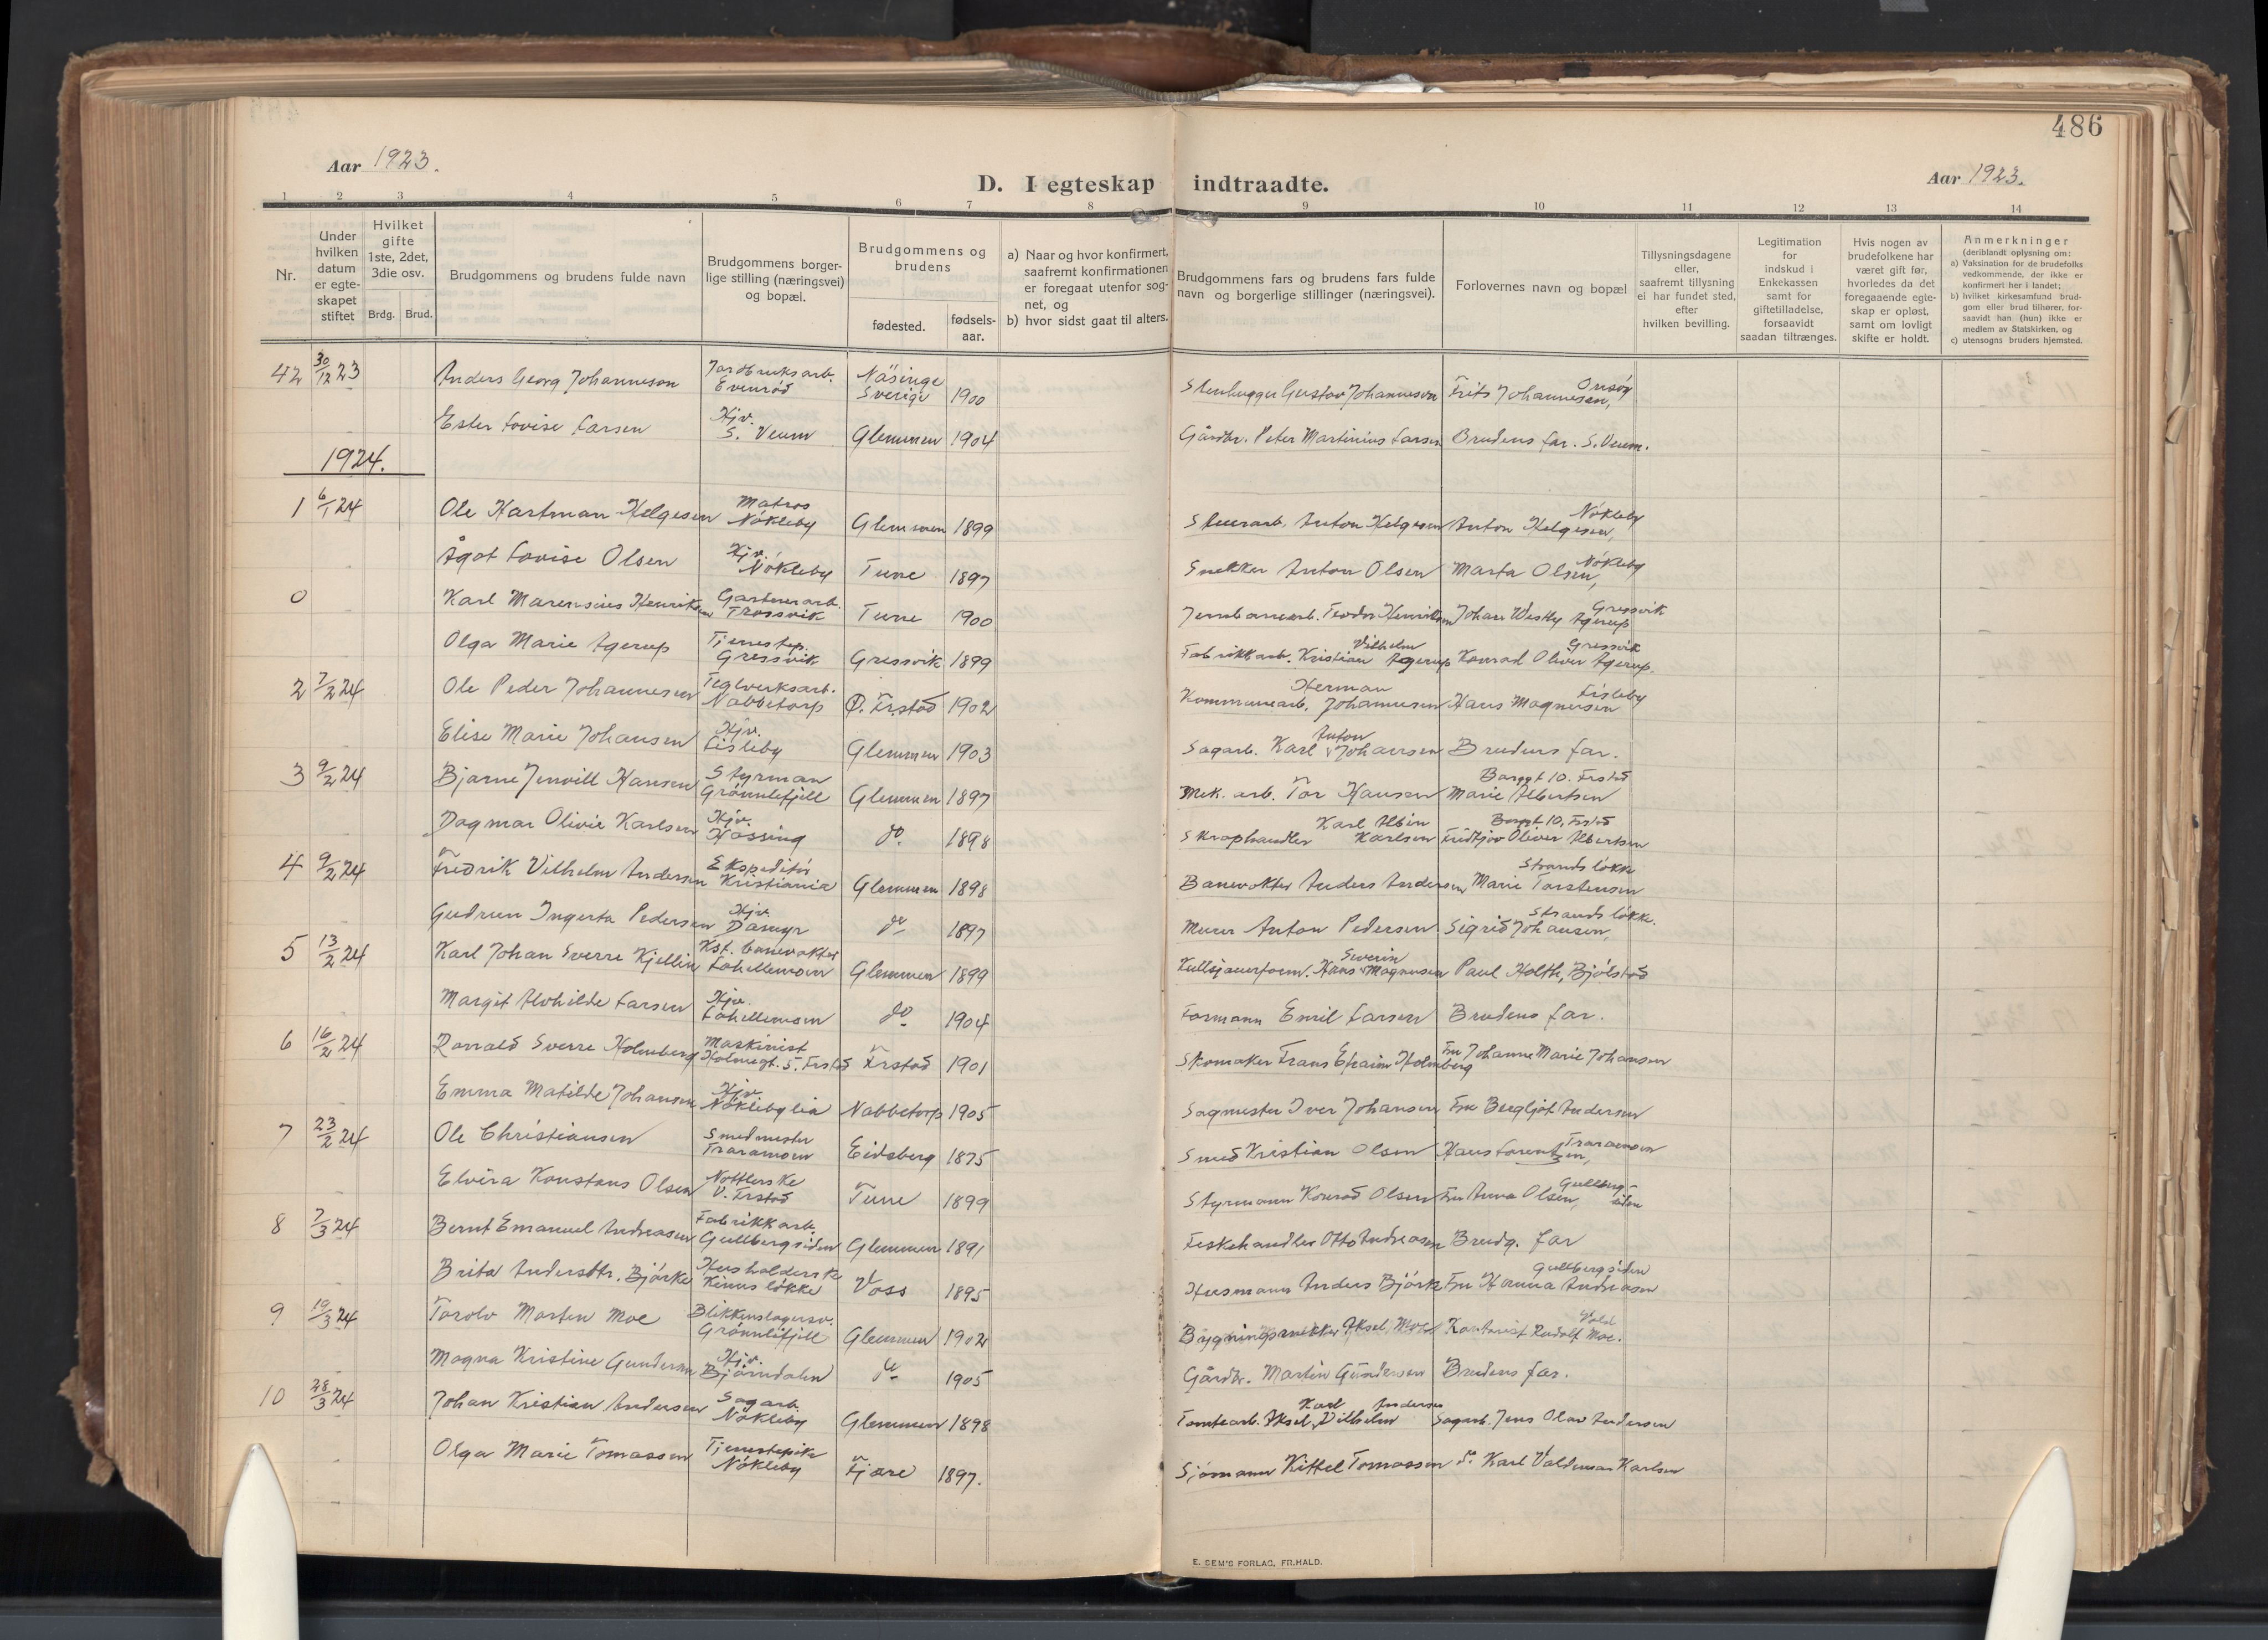 486
Aar 1923.
D. I egteskap indtraadte.
Aar 1923.
1 2 3 4 5 6 7 8 9 10 11 12 13 14
Nr.
Under hvilken datum er egte-skapet stiftet
Hvilket gifte 1ste, 2det, 3die osv.
Brdg. Brud.
Brudgommens og brudens fulde navn
Brudgommens borger-lige stilling (næringsvei) og bopæl.
Brudgommens og brudens
fødested. fødsels-aar.
a) Naar og hvor konfirmert, saafremt konfirmationen er foregaat utenfor sog-net, og
b) hvor sidst gaat til alters.
Brudgommens fars og brudens fars fulde navn og borgerlige stillinger (næringsvei).
Forlovernes navn og bopæl
Tillysningsdagene eller, saafremt tillysning ei har fundet sted, efter hvilken bevilling.
Legitimation for indskud i Enkekassen samt for giftetilladelse, forsaavidt saadan tiltrænges.
Hvis nogen av brudefolkene har været gift før, hvorledes da det foregaaende egte-skap er opløst, samt om lovligt skifte er holdt.
Anmerkninger (deriblandt oplysning om:
a) Vaksination for de brudefolks vedkommende, der ikke er konfirmert her i landet;
b) hvilket kirkesamfund brud-gom eller brud tilhører, for-saavidt han (hun) ikke er medlem av Statskirken, og
c) utensogns bruders hjemsted.
42 30/12 23 Anders Georg Johanneson Jordbruksarb. Evenrød Näsinge Sverige 1900 Stenhugger Gustav Johanneson Frits Johannesen, Onsøy
Ester Lovise Larsen Hjv. S. Veum Glemmen 1904 Gårdbr. Peter Martinius Larsen Brudens far. S. Veum.
1924.
1 6/1 24 Ole Hartman Helgesen Matros Nökleby Glemmen 1899 Stuerarb. Anton Helgesen Anton Helgesen, Nökleby
Ågot Lovise Olsen Hjv. Nökleby Tune 1897 Snekker Anton Olsen Marta Olsen, Nökleby
0 Karl Marensius Henriksen Gartnerarb. Trossvik Tune 1900 Jernbanearb. Teodor Henriksen Johan Westly Agerup Gressvik
Olga Marie Agerup Tjenestep. Gressvik Gressvik 1899 Fabrikkarb. Kristian Vilhelm Agerup Konrad Oliver Agerup. Gressvik
2 7/2 24 Ole Peder Johannesen Teglverksarb. Nabbetorp Ø. Frstad 1902 Kommunearb. Herman Johannesen Hans Magnusen Lisleby
Elise Marie Johansen Hjv. Lisleby Glemmen 1903 Sagarb. Karl Anton Johansen Brudens far.
3 9/2 24 Bjarne Jenvill Hansen Styrman Grönnlifjell Glemmen 1897 Mek. arb. Tor Hansen Marie Albertsen Bargt 10. Frstad
Dagmar Olivie Karlsen Hjv. Hassing do. 1898 Skraphandler Karl Albin Karlsen Fridtjov Oliver Albertsen Bargt 10, Frstad
4 9/2 24 Fredrik Vilhelm Andersen Ekspeditör Kristiania Glemmen 1898 Banevokter Anders Andersen Marie Torstensen Strandslökke
Gudrun Ingerta Pedersen Hjv. Damyr do 1897 Murer Anton Pedersen Sigrid Johansen, Strandslökke.
5 13/2 24 Karl Johan Sverre Kjellin Kst. banevokter Lahellemoen Glemmen 1899 Kullsjauerform. Hans Severin Magnusen Paul Holth, Bjölstad
Margit Alvhilde Larsen Hjv. Lahellemoen do 1904 Formann Emil Larsen Brudens far.
6 16/2 24 Ranald Sverre Holmberg Maskinist Holmegt. 5. Frstad Frstad 1901 Skomaker Frans Efraim Holmberg Fru Johanne Marie Johansen
Emma Matilde Johansen Hjv. Nöklebylia Nabbetorp 1905 Sagmester Iver Johansen Fru Bergljot Andersen
7 23/2 24 Ole Christiansen Smedmester Traramoen Eidsberg 1875 Smed Kristian Olsen Hans Lorentzen, Traramoen
Elvira Konstans Olsen V. Frstad Tune 1899 Styrmann Konrad Olsen Fru Anna Olsen, Gullbergsiden
8 7/3 24 Bernt Emanuel Andreasen Fabrikkarb. Gullbergsiden Glemmen 1891 Feskehandler Otto Andreasen Brudg. far
Brita Andersdtr. Bjørke Husholderske Kinnslökke Voss 1895 Husmann Anders Bjørke Fru Hanna Andreasen Gullbergsiden
9 19/3 24 Torolv Morten Moe Blikkenslagersv. Grönnlifjell Glemmen 1902 Bygningsnekker Aksel Moe Kontorist Rudolf Moe. Vold
Magna Kristine Gundersen Hjv. Björndalen do 1905 Gårdbr. Martin Gundersen Brudens far.
10 28/3 24 Johan Kristian Andersen Sagarb. Nökleby Glemmen 1898 Tomtearb. Aksel Karl Vilhelm Andersen Sagarb. Jens Olav Andersen
Olga Marie Tomassen Tjenestepike Nökleby Fjære 1897. Sjömann Kittel Tomassen do Karl Valdemar Karlsen
E. SEM'S FORLAG, FR.HALD.